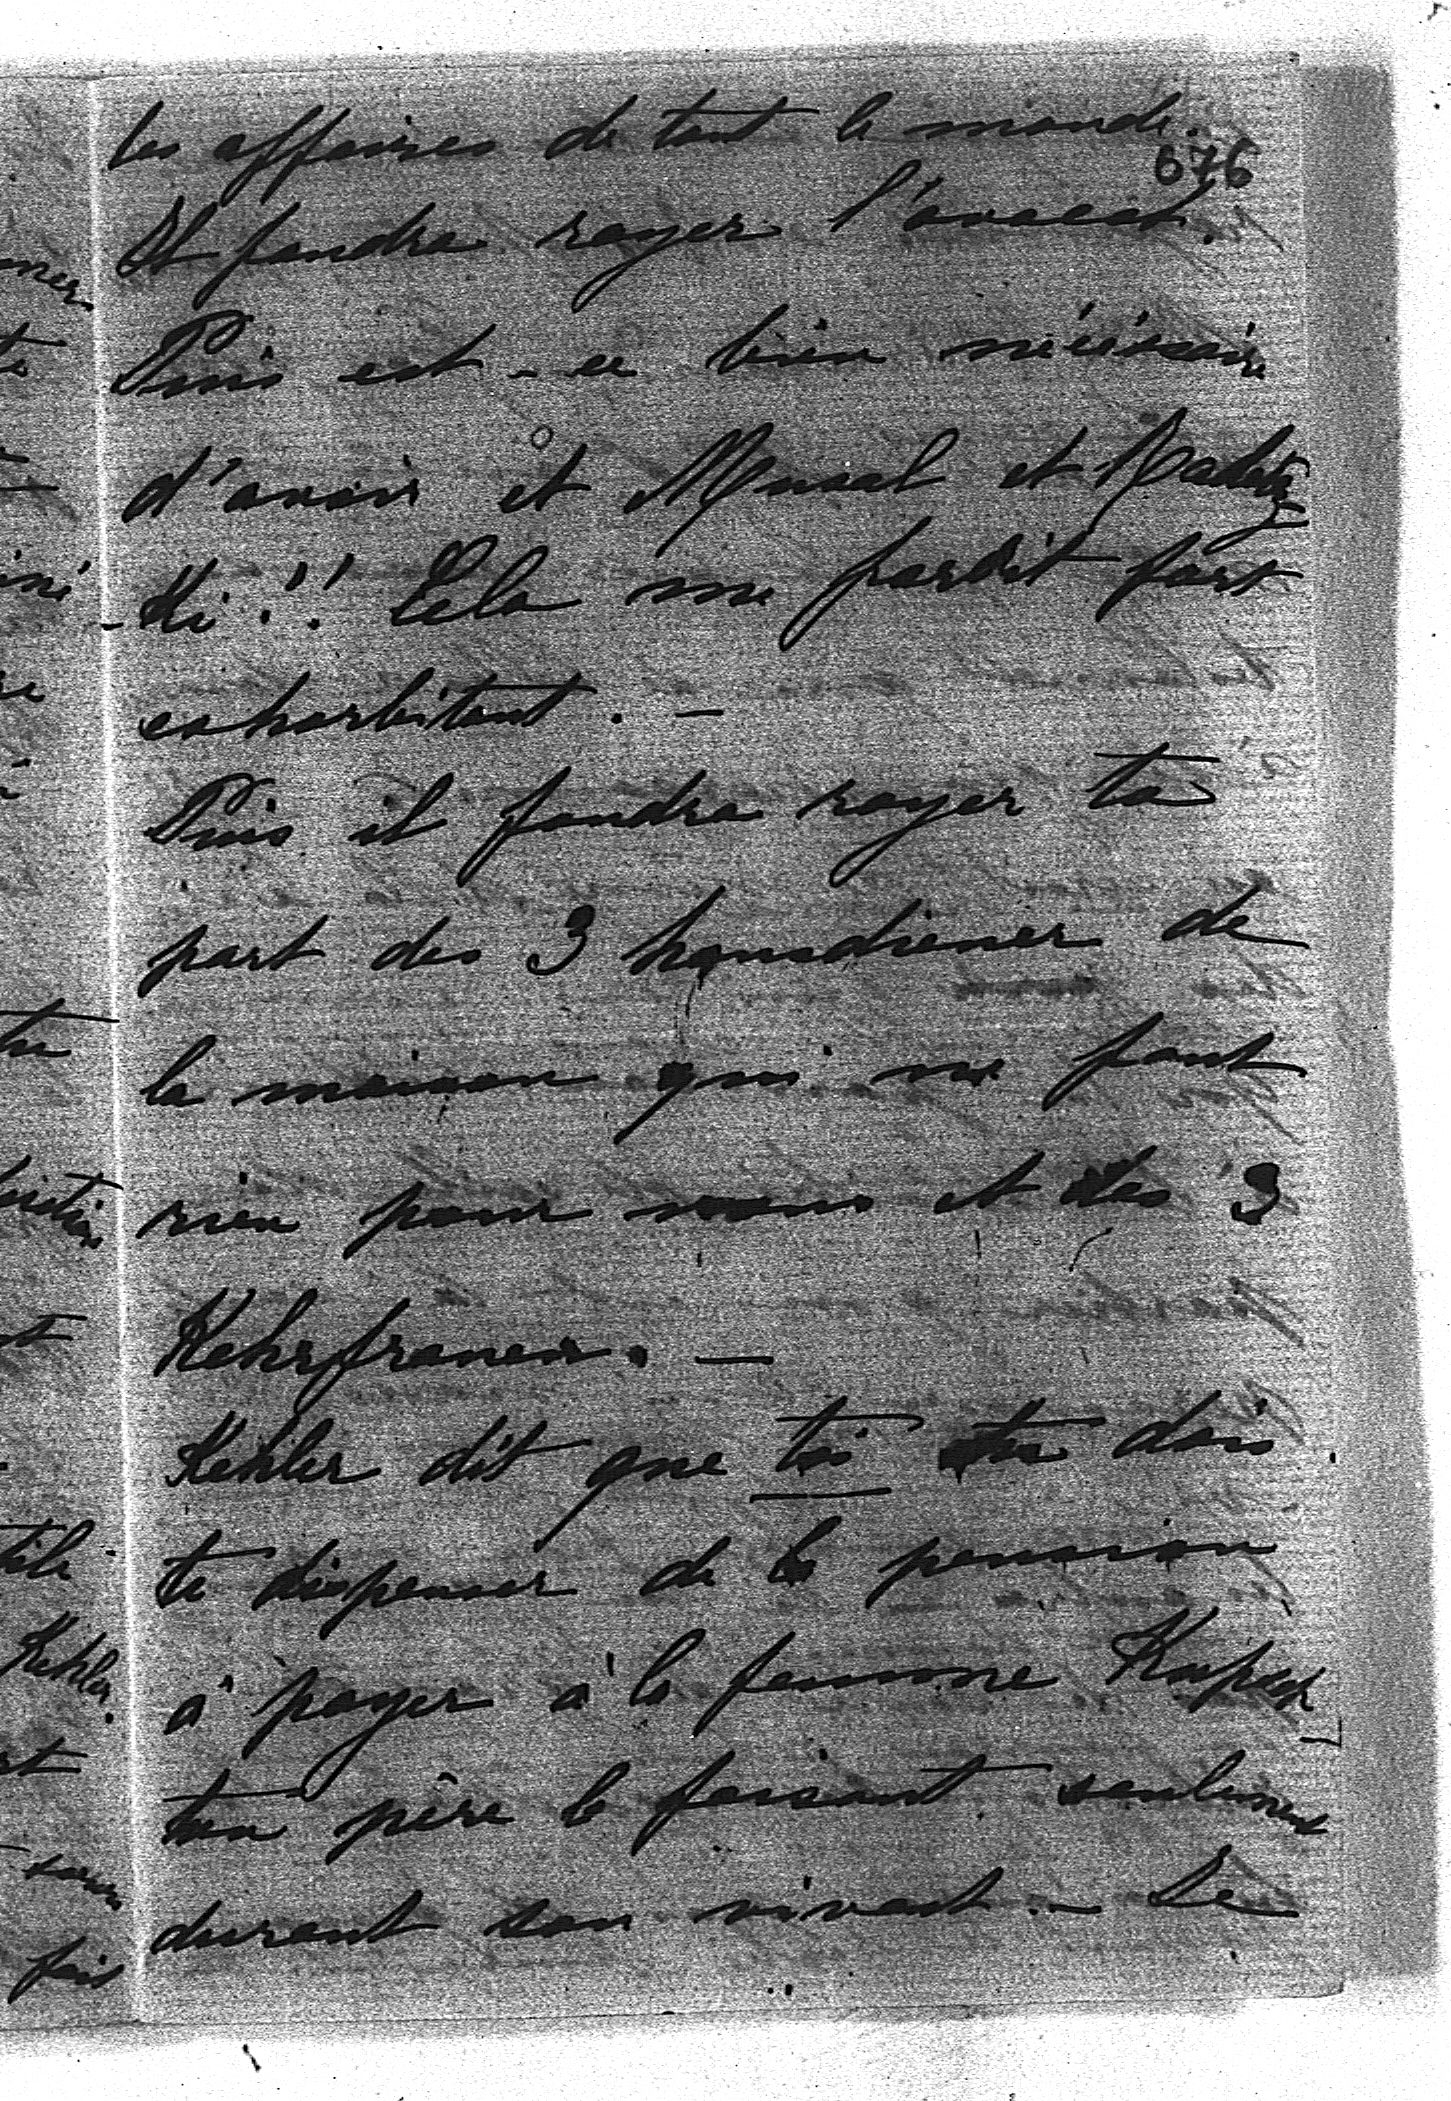 les affaires de tout le monde.
676
Il faudra rayer l'avocat.
Puis est-ce bien nécéssaire
d'avoir et Musal et
-ki!! Cela me parait fort
exhorbitant. —
Puis il faudra rayer ta
part des 3 hausdiener de
la maison qui ne font
rien pour nous et des 3
Kehrfrauen. —
Kehler dit que toi tu dois
te dispenser de la pension
à payer à la femme
ton père le faisant seulement
durant son vivant. — Le